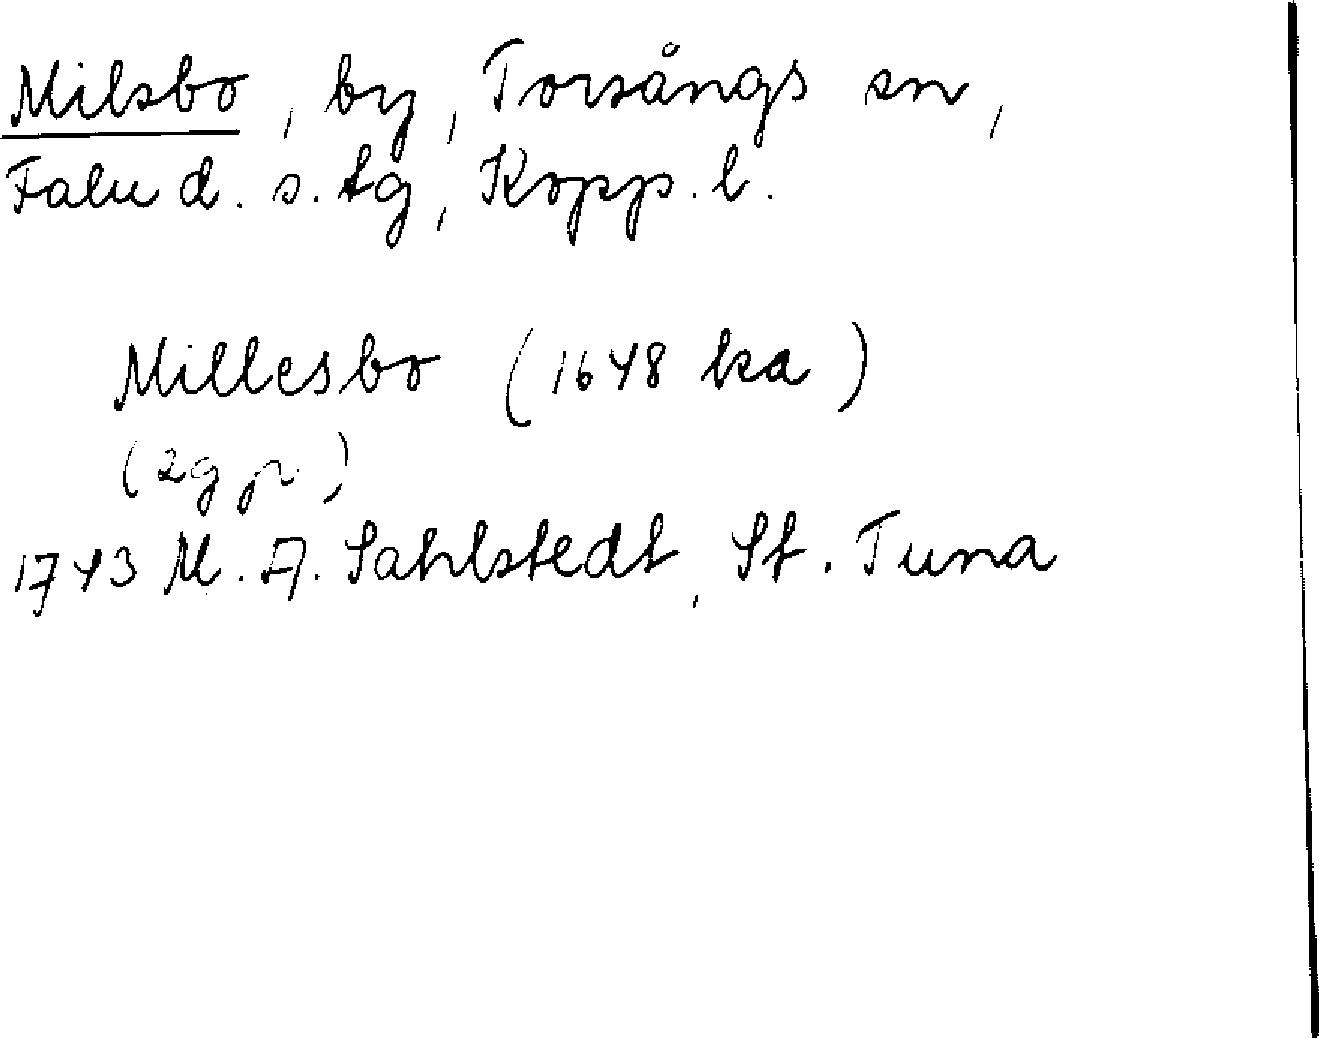 Milsbo, by, Torsångs sn,
Falu d. s. tg, Kopp. l.
Millesbo (1648 ka)
(2g jr)
1743 M. A. Sahlstedt, St. Tuna